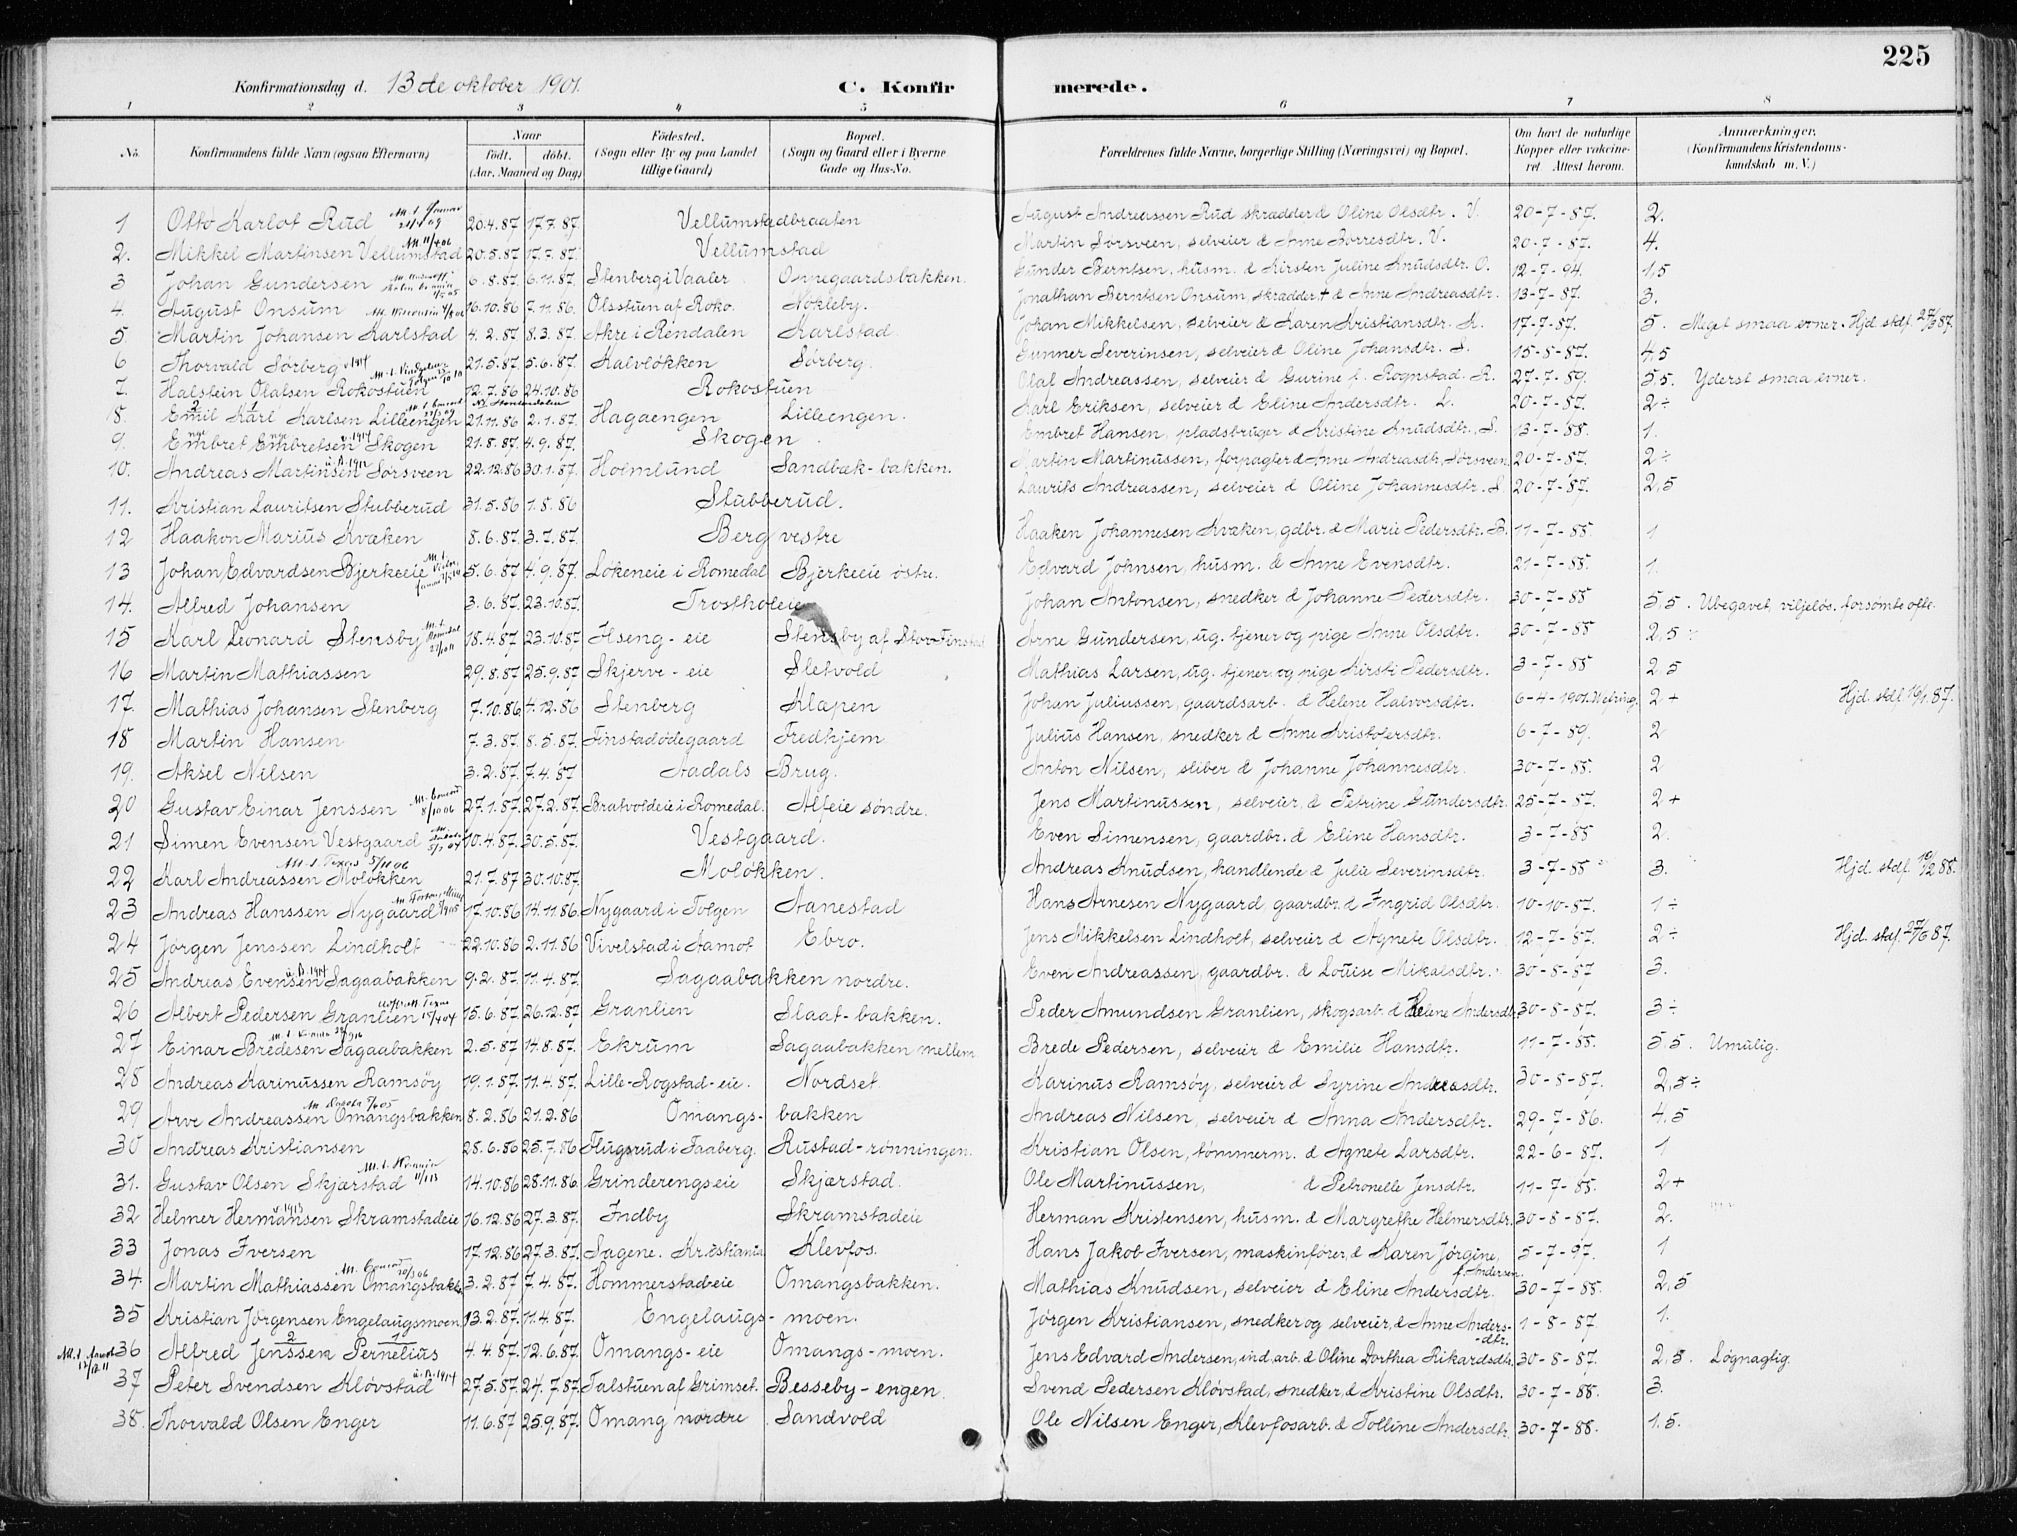 225
Konfirmationsdag d. 13de oktober 1901.
C. Konfirmerede.
1 2 3 4 5 6 7 8
No. Konfirmandens fulde Navn (ogsaa Efternavn) Naar født, døbt. (Aar, Maaned og Dag) Fødested. (Sogn eller By og paa Landet tillige Gaard) Bopæl. (Sogn og Gaard eller i Byerne Gade og Hus-No. Forældrenes fulde Navne, borgerlige Stilling (Næringsvei) og Bopæl. Om havt de naturlige Kopper eller vaccineret. Attest herom. Anmærkninger. (Konfirmandens Kristendomskundskab m. V.)
1 Otto Karlot Rud 20.4.87 17.7.87. Vellumstadbraaten August Andreassen Rud skrædder & Oline Olsdtr. V. 20-7-87. 2.
2. Mikkel Martinsen Vellumstad 20.5.87 17.7.87. Vellumstad Martin Sørsveen, selveier & Anne Borresdtr. V. 20-7-87. 4.
3 Johan Gundersen 6.8.87. 6.11.87. Stenberg i Vaaler Onnegaardsbakken. Gunder Berntsen, husm. & Kirsten Juline Knudsdtr. O. 12-7-94. 1,5
4. August Onsum 16.10.86 7.11.86. Olsstuen af Roko. Nokleby. Jonathan Berntsen Onsum, skrædder + & Anne Andreasdtr. 13-7-87. 3.
5 Martin Johansen Karlstad 4.2.87 8.3.87. Akre i Rendalen Karlstad Johan Mikkelsen, selveier & Karen Kristiansdtr. K. 17-7-87. 5. Meget smaa evner. Hjd. stdf.
6 Thorvald Sørberg 21.5.87. 5.6.87. Kalvløkken Sørberg. Gunner Severinsen, selveier & Oline Johansdtr. S. 15-8-87. 4,5
7. Halstein Olafsen Rokostuen 12.7.86 24.10.86 Rokostuen Olaf Andreassen, selveier & Gurine f. Rognstad. R. 27-7-89. 5,5. Yderst smaa evner.
8. Emil Karl Karlsen Lilleengen 21.11.86 2.1.87. Hagaengen Lilleengen. Karl Eriksen, selveier & Eline Andersdtr. L. 20-7-87. 2÷
9. Embret Embretsen Skogen 21.8.87. 4.9.87. Skogen Embret Hansen, pladsbruger & Kristine Knudsdtr. S. 13-7-88. 1.
10. Andreas Martinsen Sørsveen 22.12.86 30.1.87. Holmlund Sandbæk-bakken. Martin Martinussen, forpagter & Anne Andreasdtr. Sørsveen 20-7-87. 2÷
11. Kristian Lauritsen Stubberud 31.5.86 1.8.86 Stubberud. Laurits Andreassen, selveier & Oline Johannesdtr. S 20-7-87. 2,5
12 Haakon Marius Kvæken 8.6.87. 3.7.87. Berg vestre Haaken Johannesen Kvæken, gdbr. & Marie Pedersdtr. B. 11-7-88. 1
13 Johan Edvardsen Bjerkeeie 5.6.87 4.9.87. Løkeneie i Romedal Bjerkeeie østre. Edvard Johnsen, husm. & Anne Evensdtr. 21-7-88. 1.
14. Alfred Johansen 3.6.87. 23.10.87. Trostholeie Johan Antonsen, snedker & Johanne Pedersdtr. 30-7-88 5,5. Ubegavet, viljeløs, forsømte ofte.
15 Karl Leonard Stensby 18.4.87 23.10.87 Ilseng-eie Stensby af Store Finstad Arne Gundersen, ug. tjener og pige Anne Olsdtr. 30-7-88 2,5
16 Martin Mathiassen 29.8.87 25.9.87 Skjerve-eie Sletvold Mathias Larsen, ug. tjener og pige Kirsti Pedersdtr. 3-7-88 2,5
17. Mathias Johansen Stenberg 7.10.86 4.12.86 Stenberg Klapen Johan Juliussen, gaardsarb. & Helene Halvorsdtr. 6-4-1901. 2+ Hjd. stdf.
18 Martin Hansen 7.3.87. 8.5.87. Finstadødegaard Fredhjem Julius Hansen, snedker & Anne Kristofersdtr. 6-7-89. 2
19. Aksel Nilsen 3.2.87. 7.4.87 Aadals Brug. Anton Nilsen, sliber & Johanne Johannesdtr. 30-7-88. 2
20 Gustav Einar Jenssen 27.1.87. 27.2.87. Bratvoldeie i Romedal. Alfeie søndre. Jens Martinussen, selveier, & Petrine Gundersdtr. 25-7-87. 2+
21 Simen Evensen Vestgaard 10.4.87. 30.5.87. Vestgaard. Even Simensen, gaardbr. & Eline Hansdtr. 3-7-88 2.
22 Karl Andreassen Moløkken 21.7.87 30.10.87. Moløkken. Andreas Knudsen, handlende & Julie Severinsdtr. 3-7-88 3. Hjd. stdf.
23 Andreas Hanssen Nygaard 17.10.86 14.11.86. Nygaard i Tolgen Aanestad Hans Arnesen Nygaard, gaardbr. & Ingrid Olsdtr. 10-10-87. 1÷
24 Jørgen Jenssen Lindholt 22.10.86 2.11.86 Vivelstad i Aamot Ebro. Jens Mikkelsen Lindholt, selveier & Agnete Olsdtr. 12-7-87. 2÷ Hjd. stdf.
25 Andreas Evensen Sagaabakken 9.2.87. 11.4.87. Sagaabakken nordre. Even Andreassen, gaardbr. & Louise Mikalsdtr. 30-8-87 3.
26 Albert Pedersen Granlien 15.6.87 26.12.87 Granlien Slaat-bakken. Peder Amundsen Granlien, skogsarb. & Helene Andersdtr. 30-8-87. 3÷
27 Einar Bredesen Sagaabakken 2.5.87 14.8.87. Ekrum Sagaabakken mellem Brede Pedersen, selveier & Emilie Hansdtr. 11-7-88. 5,5. Umulig.
28 Andreas Karinussen Ramsøy 19.1.87. 11.4.87. Lille-Rogstad-eie. Nordset Karinus Ramsøy, selveier & Syrine Andreasdtr. 30-8-87. 2,5÷
29 Arve Andreassen Omangsbakken 8.2.86 21.2.86 Omangs-bakken Andreas Nilsen, selveier & Anna Andersdtr. 29-7-86. 4,5
30 Andreas Kristiansen 28.6.86 25.7.86 Flugsrud i Faaberg. Rustad-rønningen. Kristian Olsen, tømmerm. & Agnete Larsdtr. 22-6-87. 1
31. Gustav Olsen Skjærstad 14.10.86 28.11.86 Grinderengseie Skjærstad. Ole Martinussen, & Petronelle Jensdtr. 11-7-88. 2+
32 Helmer Hermansen Skramstadeie 16.12.86 27.3.87. Indby Skramstadeie Herman Kristensen, husm. & Margrethe Helmersdtr. 30-8-87. 2.
33 Jonas Iversen 17.12.86 27.3.87. Sagene. Kristiania Klevfos. Hans Jakob Iversen, maskinfører, & Karen Jørgine, f. Andersen. 5-7-97. 1
34. Martin Mathiassen Omangsbakk. 3.2.87 7.4.87 Hommerstadeie Omangsbakken. Mathias Knudsen, selveier & Eline Andersdtr. 30-7-88. 2,5
35 Kristian Jørgensen Engelaugsmoen 13.2.87. 11.4.87. Engelaugs-moen. Jørgen Kristiansen, snedker og selveier, & Anne Anders-dtr. 1-8-87 1.
36 Alfred Jenssen Pernelius 4.4.87 12.6.87. Omangs-eie Omangs-moen. Jens Edvard Andersen, ind. arb. & Oline Dorthea Rikardsdtr. 30-8-87. 2,5. Løgnagtig.
37 Peter Svendsen Kløvstad 27.5.87. 24.7.87. Talstuen af Grimset. Besseby-engen. Svend Pedersen Kløvstad, snedker, & Kristine Olsdtr. 30-7-88. 3.
38. Thorvald Olsen Enger 11.6.87 25.9.87. Omang nordre Sandvold Ole Nilsen Enger, Klevfosarb. & Tolline Andersdtr. 30-7-88. 1,5.